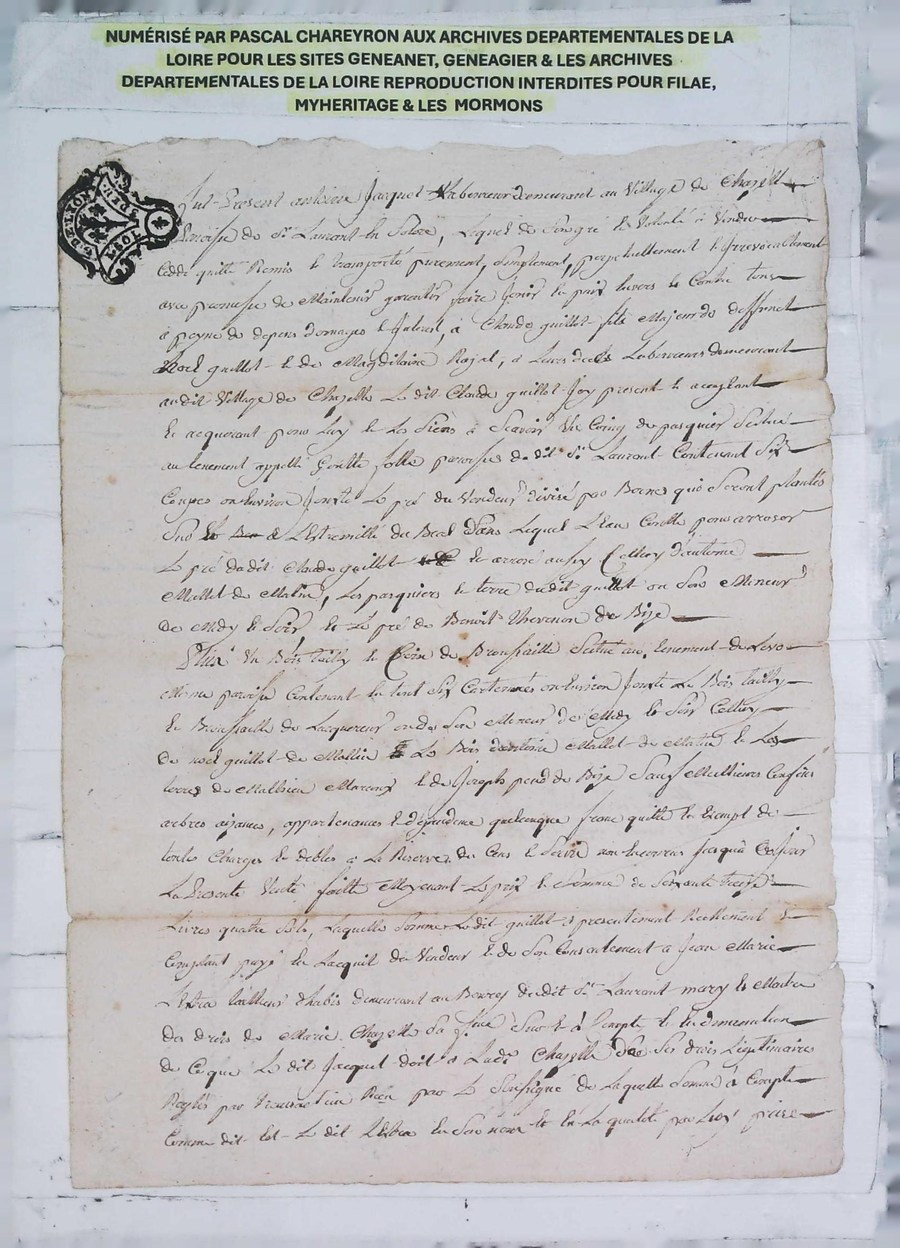 NUMÉRISÉ PAR PASCAL CHAREYRON AUX ARCHIVES DEPARTEMENTALES DE LA
LOIRE POUR LES SITES GENEANET, GENEAGIER & LES ARCHIVES
DEPARTEMENTALES DE LA LOIRE REPRODUCTION INTERDITES POUR FILAE,
MYHERITAGE & LES MORMONS
fut Present Jacquet Laboureur demeurant au Village de Chazelle
Paroisse de St Laurant en Solore, Lequel de Son gré et Volonté a Vendu
Cedé quitté Remis et transporté purement, simplement, perpetuellement et Irrevocablement
avec promesse de Maintenir garentir faire Jouir en paix envers et Contre tous
à peyne de depens domages et Interest, à Claude guillot fils Majeur de deffunct
Noel guillot et de Magdelaine Rajat, Laboureurs demeurant
audit Village de Chazelle Ledit Claude guillot Icy present et aceptant
et acquerant pour Luy et Les Siens à Scavoir Un Coing de pasquier Scitué
au tenement appellé Goutte folle paroisse dudit St Laurant Contenant Six
Coupes ou Environ Joute Le pré du Vendeur divisé par Bornes qui Seront plantés
Sur Lextremité du Beal dans Lequel L'eau Coulle pour arroser
Le pré dudit Claude guillot Celluy d'antoine
Mallet de Matin, Les pasquiers et terre dudit guillot ou Son Meneur
de Midy et Soir, et Le pré de Benoit Thevenon de Bize
Plus Un Bois tailly et Coin de Broussaille Scitué au tenement de
Meme paroisse Contenant en tout Six ou Environ Joute Le Bois tailly
et Broussaille de Lacquereur ou de Son Meneur de Midy et Soir Celluy
de noel guillot de Matin Le Bois dantoine Mallet de Matin et Les
terres de Mathieu et de Joseph de Bize Sauf Meilleures Confins
arbres aysances, appartenances et dependence quelconque franc quitte et Exempt de
toute Charges et debtes à La Reserve des Cens et Servis non encourus Jusquà Ce Jour
La Presente Vente faitte Moyenant Le prix et Somme de Soixante treise
Livres quatre Sols, Laquelle Somme Ledit guillot a presentement Reellement
Comptant payé en Lacquit du Vendeur et de Son Consentement à Jean Marie
tailleur d'habis demeurant au Bourg dudit St Laurant mary et Maitre
des droits de Marie Chazelle Sa femme Sur et à Compte et en diminution
de Ce que Le dit Jacquet doit à Ladite Chazelle de Ses droits Légitimaires
Reglés par transaction Recu par Le Soussigné de Laquelle Somme à Compte
Comme dit est Le dit en Son nom et en La qualité par Luy prise